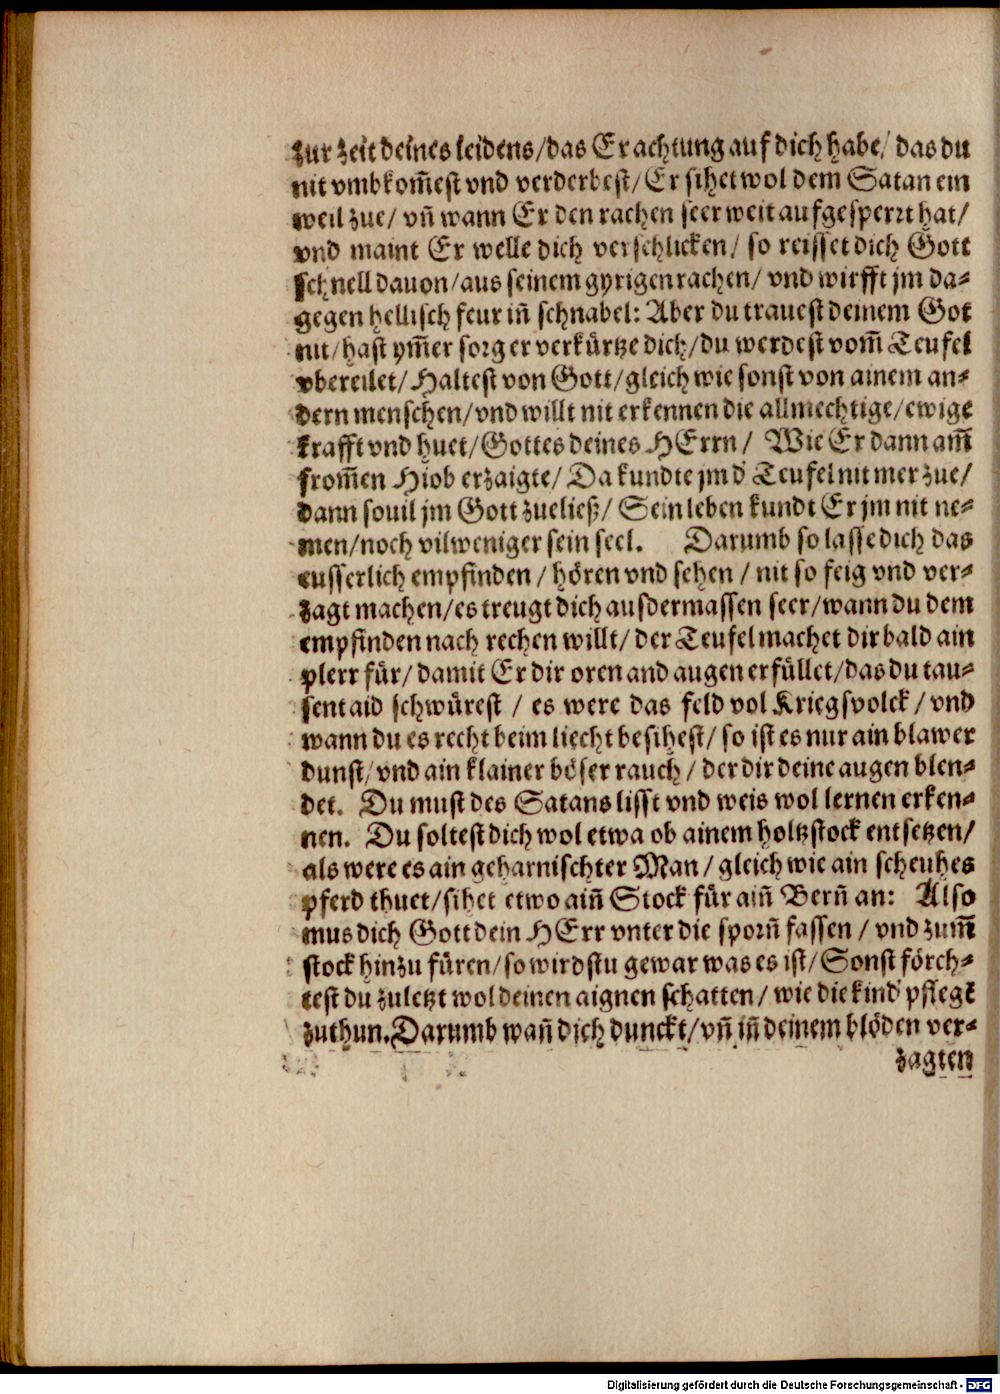 zur zeit deines leidens/das Er achtung auf dich habe/ das du
nit vmbkom̃est vnd verderbest/ Er sihet wol dem Satan ein
weil zue/ vñ wann Er den rachen seer weit aufgesperrt hat/
vnd maint Er welle dich verschlicken/ so reisset dich Gott
schnell dauon/aus seinem gyrigen rachen/ vnd wirfft jm da-
gegen hellisch feur iñ schnabel: Aber du trauest deinem Got
nit/hast ym̃er sorg er verkürtze dich/du werdest vom̃ Teufel
vbereilet/ Haltest von Gott/gleich wie sonst von ainem an-
dern menschen/vnd willt nit erkennen die allmechtige/ewige
krafft vnd huet/Gottes deines HErrn/ Wie Er dann am̃
from̃en Hiob erzaigte/ Da kundte jm d̓ Teufel nit mer zue/
dann souil jm Gott zueließ/ Sein leben kundt Er jm nit ne-
men/noch vilweniger sein seel. Darumb so lasse dich das
eusserlich empfinden/hören vnd sehen/nit so feig vnd ver-
zagt machen/es treugt dich ausdermassen seer/wann du dem
empfinden nach rechen willt/der Teufel machet dir bald ain
plerr für/damit Er dir oren and augen erfüllet/das du tau-
sent aid schwürest / es were das feld vol Kriegsvolck / vnd
wann du es recht beim liecht besihest/ so ist es nur ain blawer
dunst/vnd ain klainer böser rauch/der dir deine augen blen-
det. Du must des Satans lisst vnd weis wol lernen erken-
nen. Du soltest dich wol etwa ob ainem holtzstock entsetzen/
als were es ain geharnischter Man/gleich wie ain scheuhes
pferd thuet/sihet etwo aiñ Stock für aiñ Berñ an: Also
mus dich Gott dein HErr vnter die sporñ fassen / vnd zum̃
stock hinzu füren/so wirdstu gewar was es ist/Sonst förch-
test du zuletzt wol deinen aignen schatten/ wie die kind̓ pflegt
zuthun. Darumb wañ dich dunckt/vñ iñ deinem blöden ver-
zagten
Digitalisierung gefördert durch die Deutsche Forschungsgemeinschaft - DFG